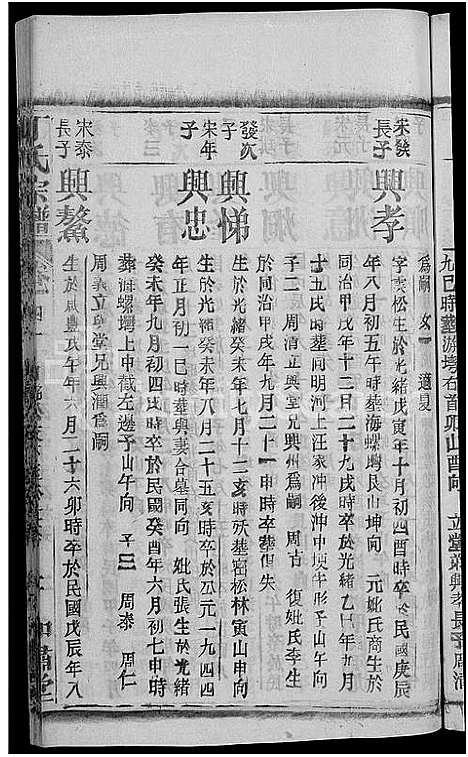 九巳時葬游塆右首卯山酉向 立堂弟興孝長子周清
爲嗣 女一 適夏
宋發長子 興孝
字雲松生於光緒戊寅年十月初四酉時卒於民國庚辰
年八月初五午時葬海螺塆艮山坤向 元妣氏商生於
同治甲戌年十二月二十九戌時卒於光緒乙巳年九月
十五戌時葬同明河上汪家冲後冲中埂午形子山午向
子二 周清立興堂兄興州爲嗣 周古 復妣氏李生
於同治 戌年 月二十一申時卒葬俱失
發次子 興悌
生於光緒癸未年七月十二亥時殀葬窑松林寅山申向
宋年子 興忠
生於光緒癸未年八月二十五亥時卒於公元一九四四
年正月初一巳時葬與妻合墓同向 妣氏張生於光緒
癸未年九月初四戌時卒於民國癸酉年六月初七申時
葬海螺塆上中截左邊子山午向 子三 周泰 周仁
周義立興堂兄興潤爲嗣
宋泰長子 興鰲
生於咸豐戊午年六月二十六卯時卒於民國戊辰年八
氏宗譜